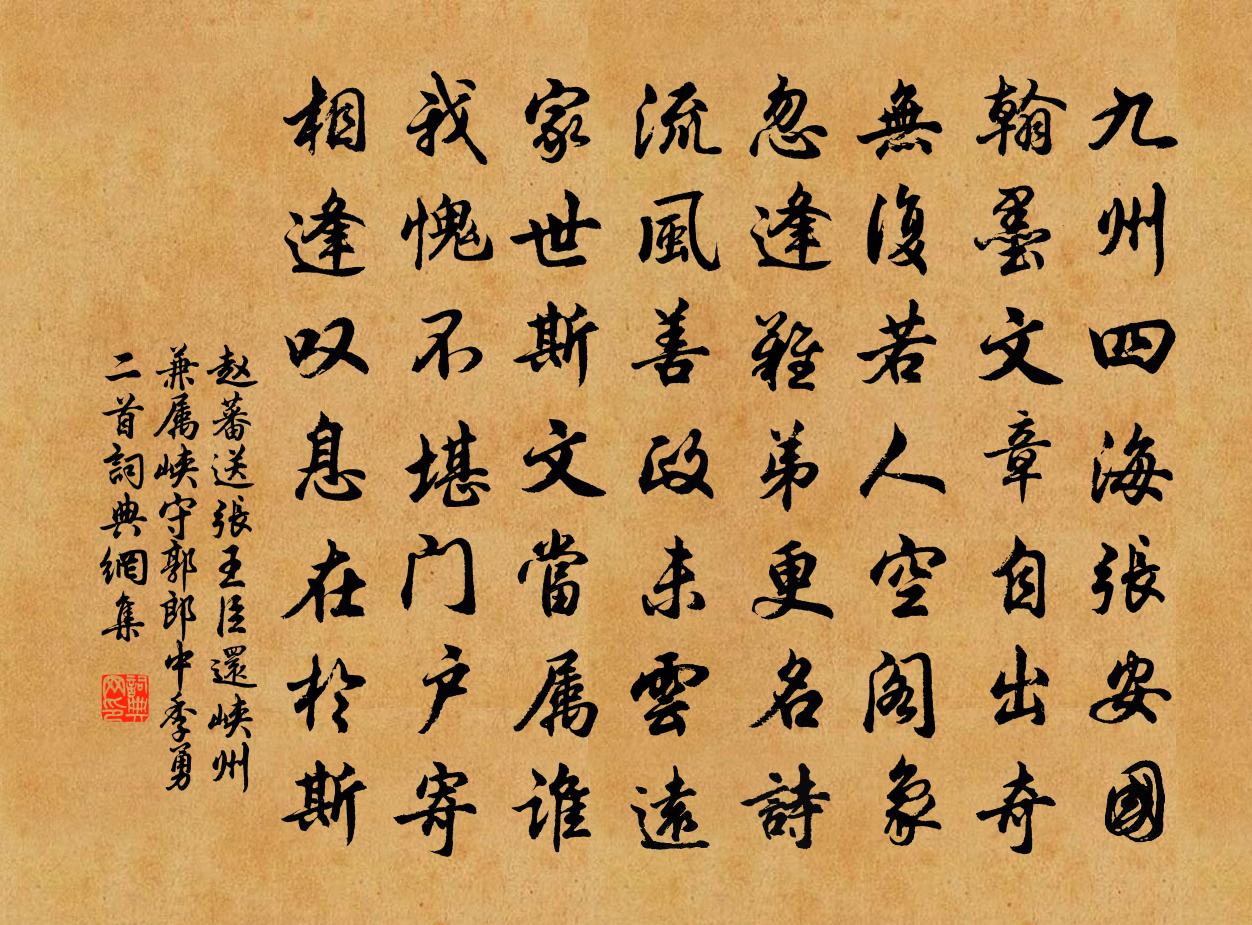 九州四海張安國
翰墨文章自出奇
無復若人空閣象
忽逢難弟更名詩
流風善政未雲遠
家世斯文當属誰
我愧不堪门户寄
相逢叹息在於斯
赵蕃送張王臣還峡州
兼属峡守郭郎中季勇
二首詞典網集
詞典網印